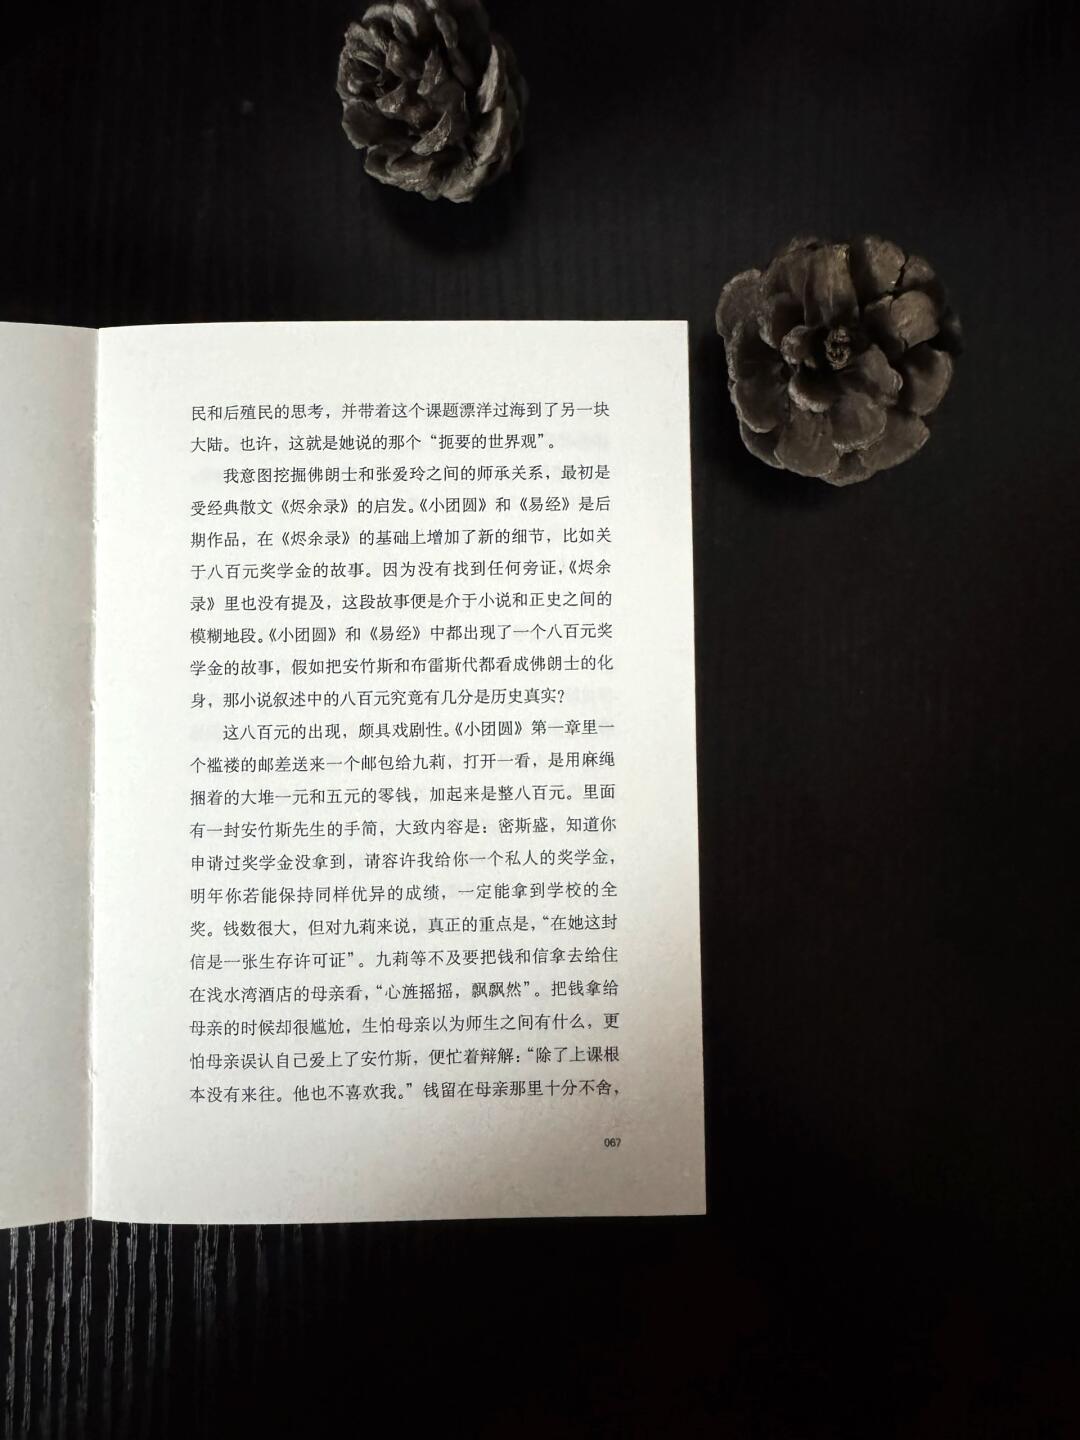 民和后殖民的思考，并带着这个课题漂洋过海到了另一块
大陆。也许，这就是她说的那个“扼要的世界观”。
我意图挖掘佛朗士和张爱玲之间的师承关系，最初是
受经典散文《烬余录》的启发。《小团圆》和《易经》是后
期作品，在《烬余录》的基础上增加了新的细节，比如关
于八百元奖学金的故事。因为没有找到任何旁证，《烬余
录》里也没有提及，这段故事便是介于小说和正史之间的
模糊地段。《小团圆》和《易经》中都出现了一个八百元奖
学金的故事，假如把安竹斯和布雷斯代都看成佛朗士的化
身，那小说叙述中的八百元究竟有几分是历史真实？
这八百元的出现，颇具戏剧性。《小团圆》第一章里一
个褴褛的邮差送来一个邮包给九莉，打开一看，是用麻绳
捆着的大堆一元和五元的零钱，加起来是整八百元。里面
有一封安竹斯先生的手简，大致内容是：密斯盛，知道你
申请过奖学金没拿到，请容许我给你一个私人的奖学金，
明年你若能保持同样优异的成绩，一定能拿到学校的全
奖。钱数很大，但对九莉来说，真正的重点是，“在她这封
信是一张生存许可证”。九莉等不及要把钱和信拿去给住
在浅水湾酒店的母亲看，“心旌摇摇，飘飘然”。把钱拿给
母亲的时候却很尴尬，生怕母亲以为师生之间有什么，更
怕母亲误认自己爱上了安竹斯，便忙着辩解：“除了上课根
本没有来往。他也不喜欢我。”钱留在母亲那里十分不舍，
067